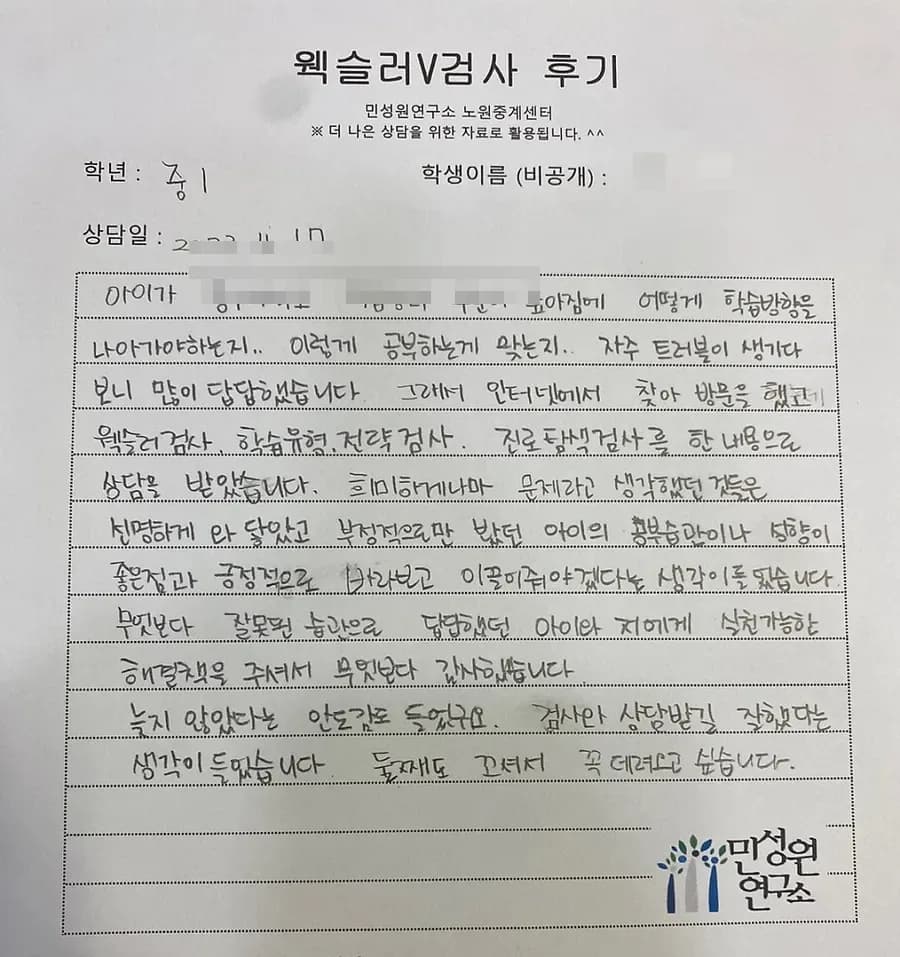 웩슬러V검사 후기
민성원연구소 노원중계센터
※ 더 나은 상담을 위한 자료로 활용됩니다. ^^
학년 : 중1
학생이름 (비공개) :
상담일 : 17
아이가 어떻게 학습방향을
나아가야하는지.. 이렇게 공부하는게 맞는지.. 자주 트러블이 생기다
보니 많이 답답했습니다. 그래서 인터넷에서 찾아 방문을 했고
웩슬러검사, 학습유형.전략검사. 진로탐색검사를 한 내용으로
상담을 받았습니다. 희미하게나마 문제라고 생각했던 것들은
선명하게 와 닿았고 부정적으로만 봤던 아이의 공부습관이나 성향이
좋은점과 긍정적으로 바라보고 이끌어줘야겠다는 생각이 들었습니다
무엇보다 잘못된 습관으로 답답했던 아이와 저에게 실천가능한
해결책을 주셔서 무엇보다 감사했습니다
늦지 않았다는 안도감도 들었구요. 검사와 상담받길 잘했다는
생각이 들었습니다. 둘째도 꼬셔서 꼭 데려오고 싶습니다.
민성원
연구소